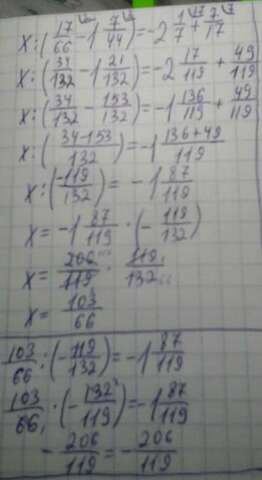 x:(17/66 - 1 7/44) = -2 1/7 + 7/17
x:(34/132 - 1 21/132) = -2 17/119 + 49/119
x:(34/132 - 153/132) = -1 136/119 + 49/119
x:(34-153/132) = -1 136+49/119
x:(-119/132) = -1 87/119
x = -1 87/119 · (-119/132)
x = 206/119 · 119/132
x = 103/66
103/66 : (-119/132) = -1 87/119
103/66 · (-132/119) = -1 87/119
-206/119 = -206/119